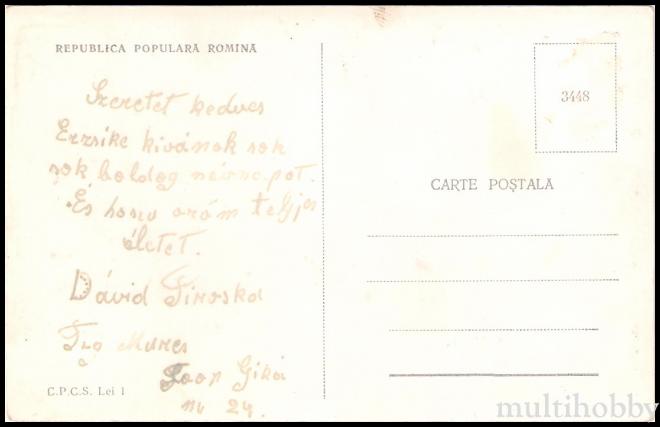 REPUBLICA POPULARĂ ROMÎNĂ
Szeretet kedves
Erzsike kivánok sok
sok boldog névnapot.
És hosu örám teljes
életet.
Dávid Piroska
Trg Mures
Ioan Gika
nr 24.
C.P.C.S. Lei 1
3448
CARTE POȘTALĂ
multihobby